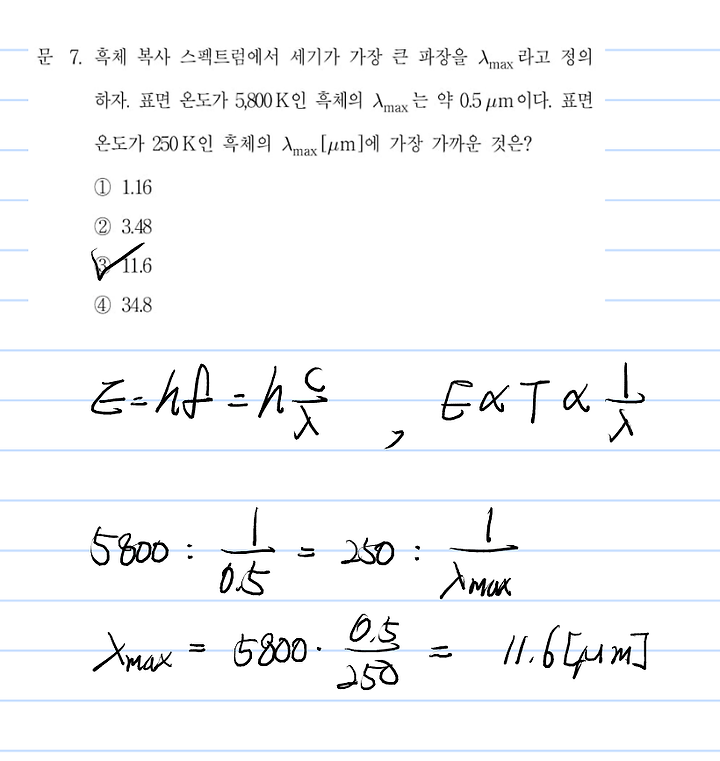 문 7. 흑체 복사 스펙트럼에서 세기가 가장 큰 파장을 λmax라고 정의
하자. 표면 온도가 5,800 K인 흑체의 λmax는 약 0.5 μm이다. 표면
온도가 250 K인 흑체의 λmax[μm]에 가장 가까운 것은?
① 1.16
② 3.48
③ 11.6
④ 34.8
E = hf = h c/λ , E ∝ T ∝ 1/λ
5800 : 1/0.5 = 250 : 1/λmax
λmax = 5800 · 0.5/250 = 11.6 [μm]